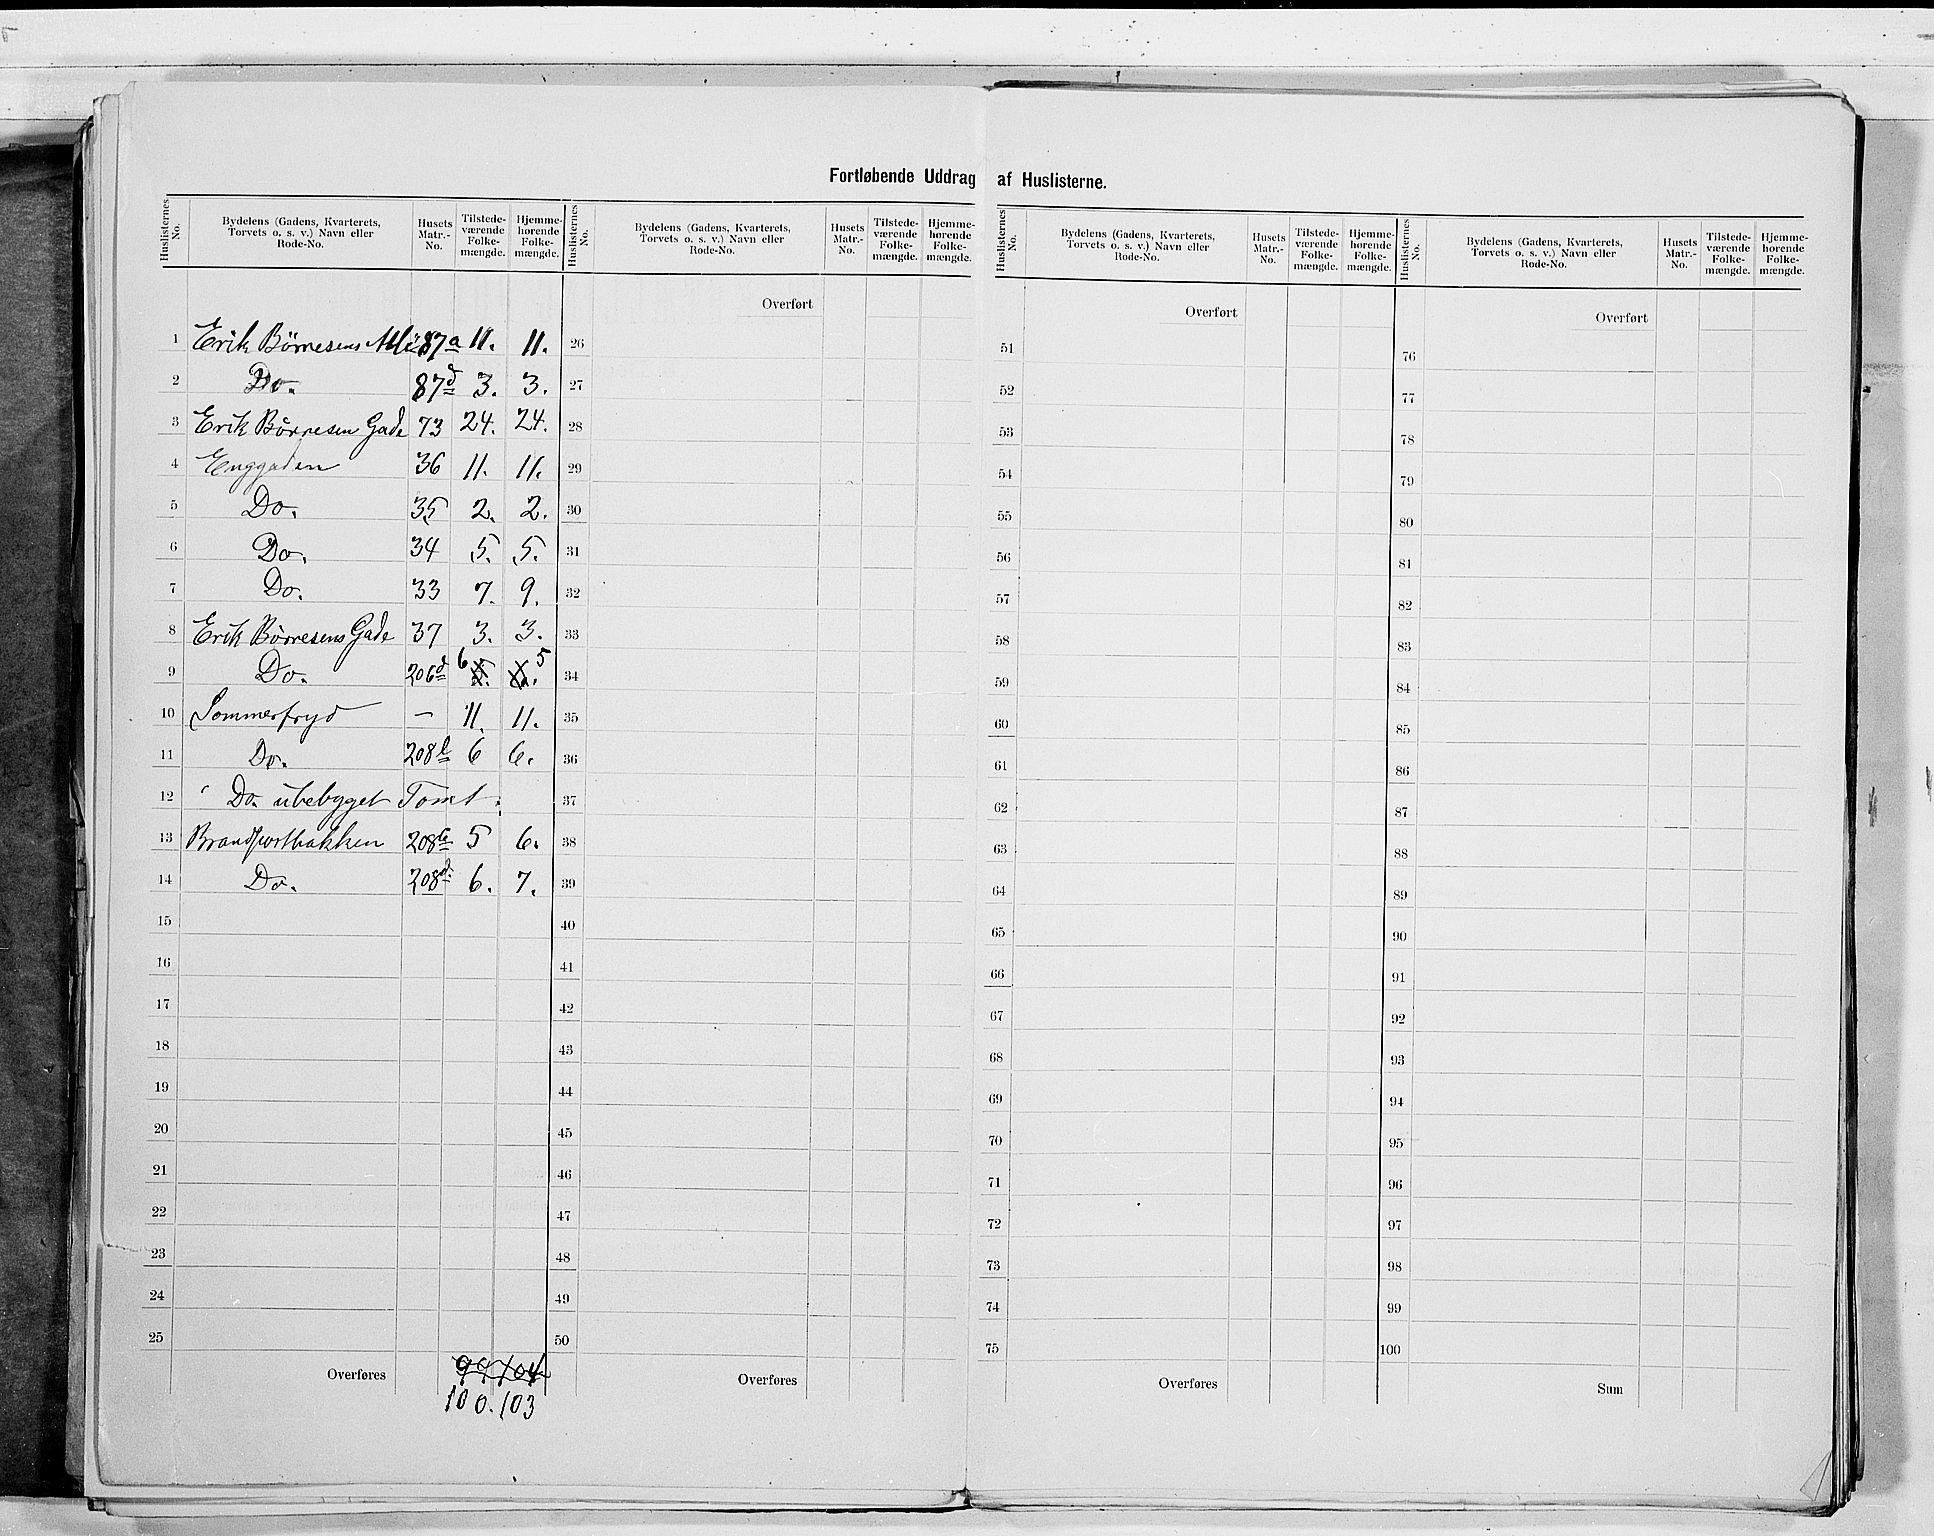 Fortløbende Uddrag af Huslisterne.
Huslisternes No. | Bydelens (Gadens, Kvarterets, Torvets o. s. v.) Navn eller Rode-No. | Husets Matr.-No. | Tilstedeværende Folkemængde. | Hjemmehørende Folkemængde.
1 Erik Börresens 87a 11. 11.
2 Do. 87d 3. 3.
3 Erik Börresen Gade 73 24. 24.
4 Enggaden 36 11. 11.
5 Do. 35 2. 2.
6 Do. 34 5. 5.
7 Do. 33 7. 9.
8 Erik Börresens Gade 37 3. 3.
9 Do. 206d 6 5
10 Sommerfryd — 11. 11.
11 Do. 208b 6 6.
12 Do. ubebygget Tomt.
13 Brandportbakken 208c 5 6.
14 Do. 208d 6. 7.
15
16
17
18
19
20
21
22
23
24
25
Overføres 99 104
100. 103
Huslisternes No. | Bydelens (Gadens, Kvarterets, Torvets o. s. v.) Navn eller Rode-No. | Husets Matr.-No. | Tilstedeværende Folkemængde. | Hjemmehørende Folkemængde.
Overført
26
27
28
29
30
31
32
33
34
35
36
37
38
39
40
41
42
43
44
45
46
47
48
49
50
Overføres
Huslisternes No. | Bydelens (Gadens, Kvarterets, Torvets o. s. v.) Navn eller Rode-No. | Husets Matr.-No. | Tilstedeværende Folkemængde. | Hjemmehørende Folkemængde.
Overført
51
52
53
54
55
56
57
58
59
60
61
62
63
64
65
66
67
68
69
70
71
72
73
74
75
Overføres
Huslisternes No. | Bydelens (Gadens, Kvarterets, Torvets o. s. v.) Navn eller Rode-No. | Husets Matr.-No. | Tilstedeværende Folkemængde. | Hjemmehørende Folkemængde.
Overført
76
77
78
79
80
81
82
83
84
85
86
87
88
89
90
91
92
93
94
95
96
97
98
99
100
Sum